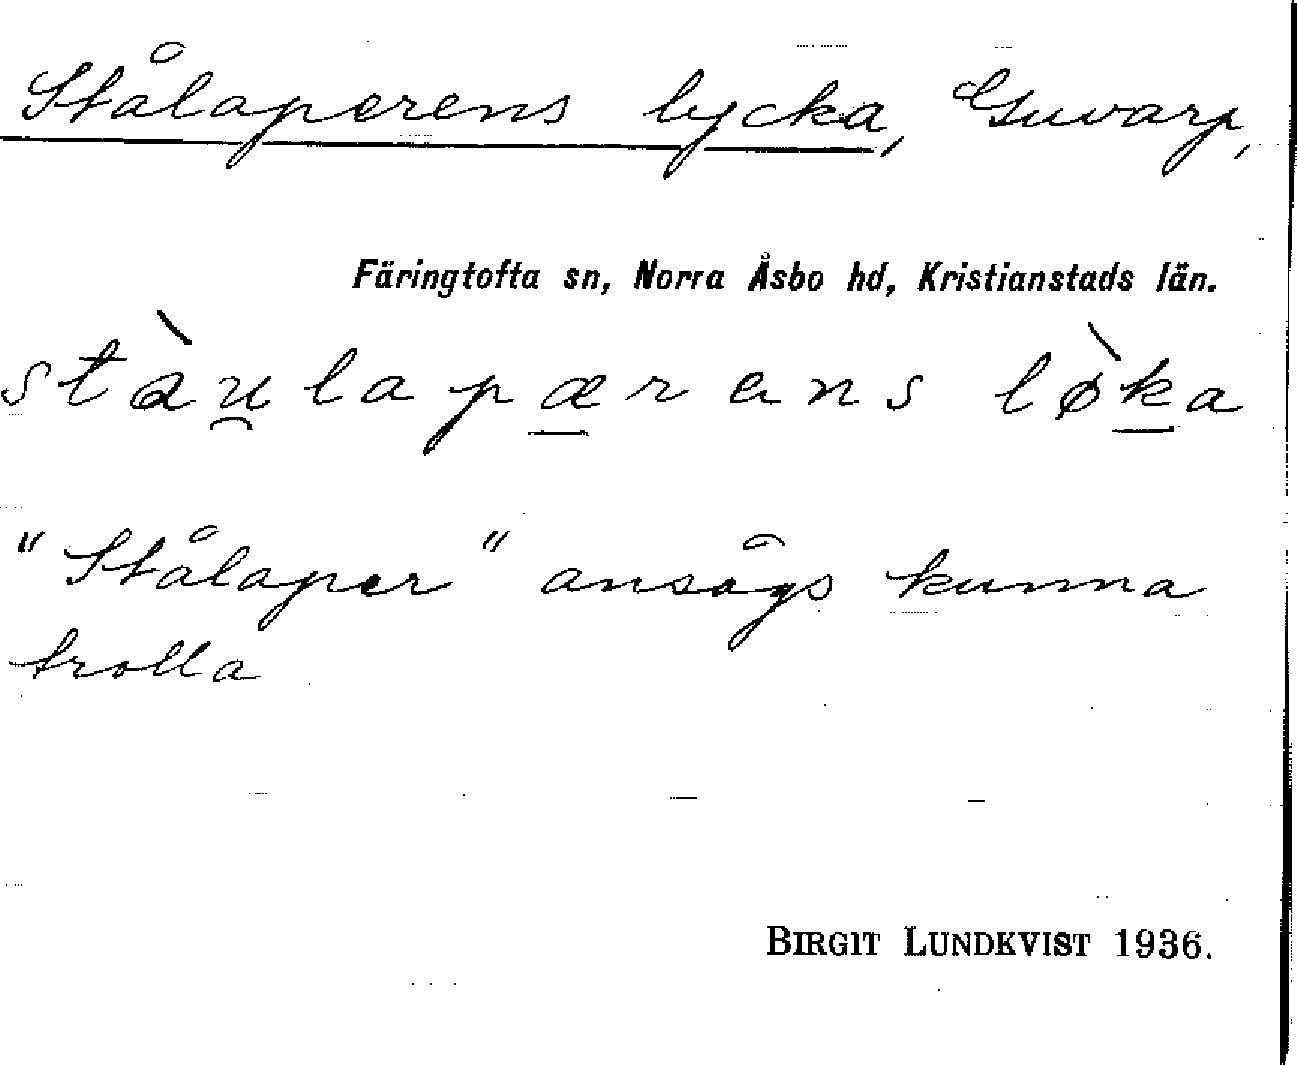 Stålaperens lycka, Guvarp,
Färingtofta sn, Norra Åsbo hd, Kristianstads län.
stàu̯lapærens lø̀ka
"Stålaper" ansågs kunna
trolla
BIRGIT LUNDKVIST 1936.